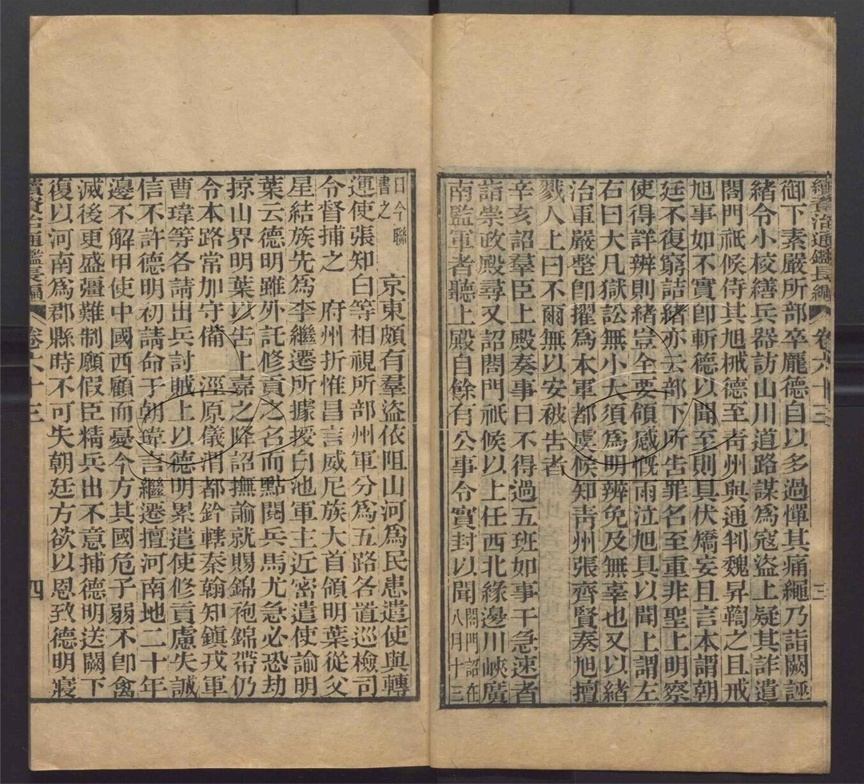 續資治通鑑長編 卷六十三 三
御下素嚴所部卒龐德自以多過憚其痛繩乃詣闕誣
緒令小校繕兵器訪山川道路謀為寇盜上疑其詐遣
閤門祗候侍其旭械德至青州與通判魏昇鞫之且戒
旭事如不實卽斬德以聞至則具伏矯妄且言本謂朝
廷不復窮詰緒亦云部下所告罪名至重非聖上明察
使得詳辨則緒豈全要領感慨雨泣旭具以聞上謂左
右曰大凡獄訟無小大須為明辨免及無辜也又以緒
治軍嚴整卽擢為本軍都虞候知靑州張齊賢奏旭擅
戮人上曰不爾無以安被告者
辛亥詔羣臣上殿奏事曰不得過五班如事干急速者
詣崇政殿尋又詔閤門祗候以上任西北緣邊川峽廣
南監軍者聽上殿自餘有公事令實封以聞 閤門詔在八月十三
日今聯書之 京東頗有羣盜依阻山河為民患遣使與轉
運使張知白等相視所部州軍分為五路各置巡檢司
令督捕之 府州折惟昌言威尼族大首領明葉從父
星結族先為李繼遷所據授白池軍主近密遣使諭明
葉云德明雖外託修貢之名而點閱兵馬尤急必恐劫
掠山界明葉以告上嘉之降詔撫諭就賜錦袍錦帶仍
令本路常加守備 涇原儀渭都鈐轄秦翰知鎭戎軍
曹瑋等各請出兵討賊上以德明累遣使修貢慮失誠
信不許德明初請命于朝瑋言繼遷擅河南地二十年
邊不解甲使中國西顧而憂今方其國危子弱不卽禽
滅後更盛彊難制願假臣精兵出不意捕德明送闕下
復以河南為郡縣時不可失朝廷方欲以恩致德明寢
續資治通鑑長編 卷六十三 四